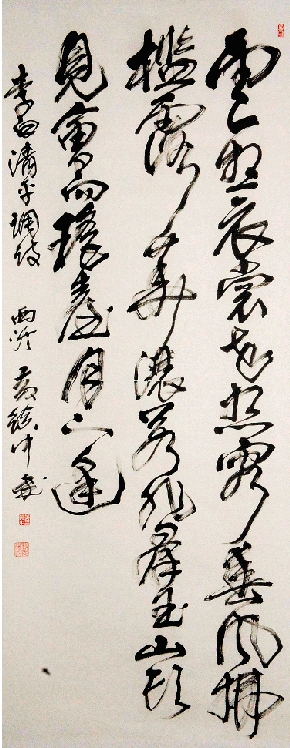 雲想衣裳花想容春風拂
檻露華濃若非羣玉山頭
見會向瑤臺月下逢
李白清平調 西泠 中書